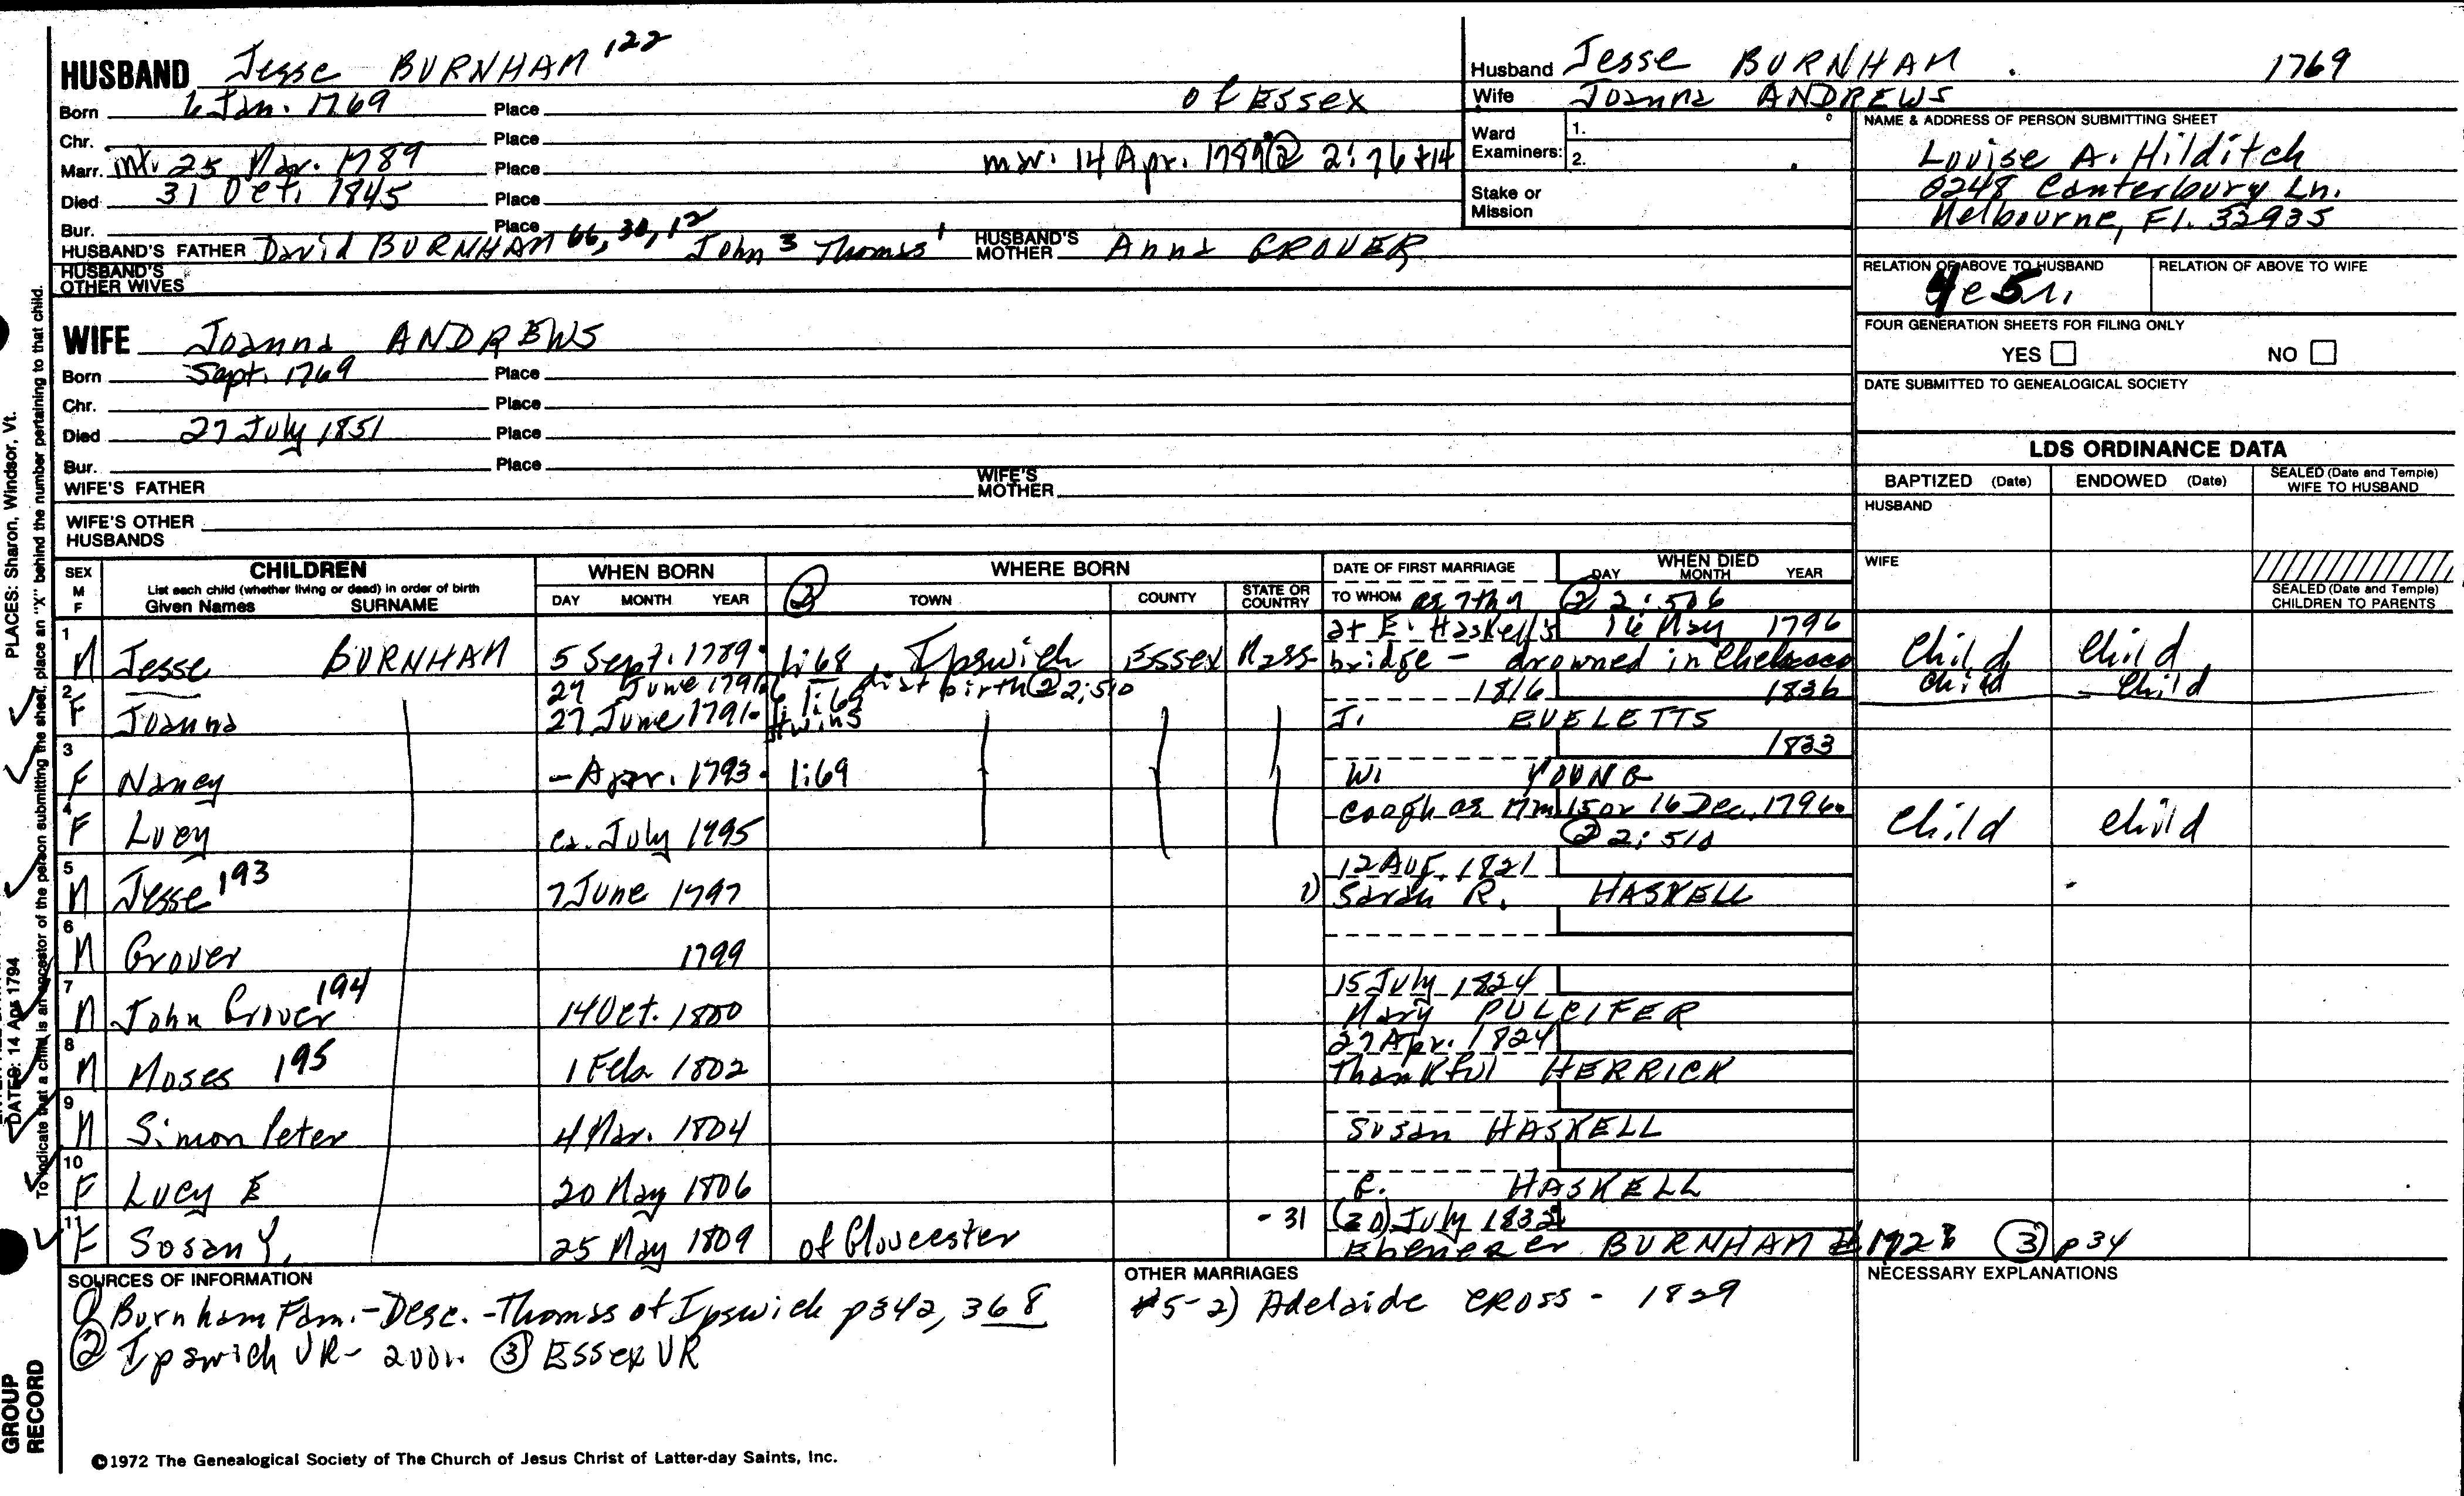 HUSBAND Jesse BURNHAM 122
Born 6 Jan. 1769 Place of Essex
Chr. Place
Marr. int. 25 Mar. 1789 Place mar. 14 Apr. 1789 @ 2:76+14
Died 31 Oct. 1845 Place
Bur. Place
HUSBAND'S FATHER David BURNHAM 66, 30, 12 John 3 Thomas 1 HUSBAND'S MOTHER Anna GROVER
HUSBAND'S OTHER WIVES
WIFE Joanna ANDREWS
Born Sept. 1769 Place
Chr. Place
Died 27 July 1851 Place
Bur. Place
WIFE'S FATHER WIFE'S MOTHER
WIFE'S OTHER HUSBANDS
Husband Jesse BURNHAM 1769
Wife Joanna ANDREWS
Ward Examiners: 1. 2.
Stake or Mission
NAME & ADDRESS OF PERSON SUBMITTING SHEET
Louise A. Hilditch
Canterbury Ln.
Melbourne, Fl. 32935
RELATION OF ABOVE TO HUSBAND RELATION OF ABOVE TO WIFE
FOUR GENERATION SHEETS FOR FILING ONLY
YES NO
DATE SUBMITTED TO GENEALOGICAL SOCIETY
LDS ORDINANCE DATA
BAPTIZED (Date) ENDOWED (Date) SEALED (Date and Temple) WIFE TO HUSBAND
HUSBAND
WIFE
SEALED (Date and Temple) CHILDREN TO PARENTS
SEX M F
CHILDREN
List each child (whether living or dead) in order of birth
Given Names SURNAME
WHEN BORN
DAY MONTH YEAR
WHERE BORN
② TOWN COUNTY STATE OR COUNTRY
DATE OF FIRST MARRIAGE
TO WHOM
WHEN DIED
DAY MONTH YEAR
② 2:506
at E. Haskell's 16 May 1796
1 M Jesse BURNHAM 5 Sept. 1789 1:68 Ipswich Essex Mass bridge - drowned in Chebacco Child Child
27 June 1791 1:68 dist birth ② 2:510 1816 1836 Child Child
2 F Joanna 27 June 1791 twins J. EVELETTS
1833
3 F Nancy - Apr. 1793 1:69 W. YOUNG
15 or 16 Dec. 1796
4 F Lucy ca. July 1795 ② 2:510 Child Child
12 Aug. 1821
5 M Jesse 193 7 June 1797 1) Sarah R. HASKELL
6 M Grover 1799
15 July 1824
7 M John Grover 194 14 Oct. 1800 Mary PULCIFER
27 Apr. 1824
8 M Moses 195 1 Feb 1802 Thankful HERRICK
9 M Simon Peter 4 Mar. 1804 Susan HASKELL
10 F Lucy E 20 May 1806 HASKELL
- 31 (20) July 1832
11 F Susan Y. 25 May 1809 of Gloucester Ebenezer BURNHAM ③ p34
SOURCES OF INFORMATION
① Burnham Fam. - Desc. - Thomas of Ipswich p342, 368
② Ipswich VR - 2vol. ③ Essex VR
OTHER MARRIAGES
#5-2) Adelaide CROSS - 1829
NECESSARY EXPLANATIONS
©1972 The Genealogical Society of The Church of Jesus Christ of Latter-day Saints, Inc.
PLACES: Sharon, Windsor, Vt.
DATES: 14 Apr 1794
To indicate that a child is an ancestor of the person submitting the sheet, place an "X" behind the number pertaining to that child.
GROUP
RECORD